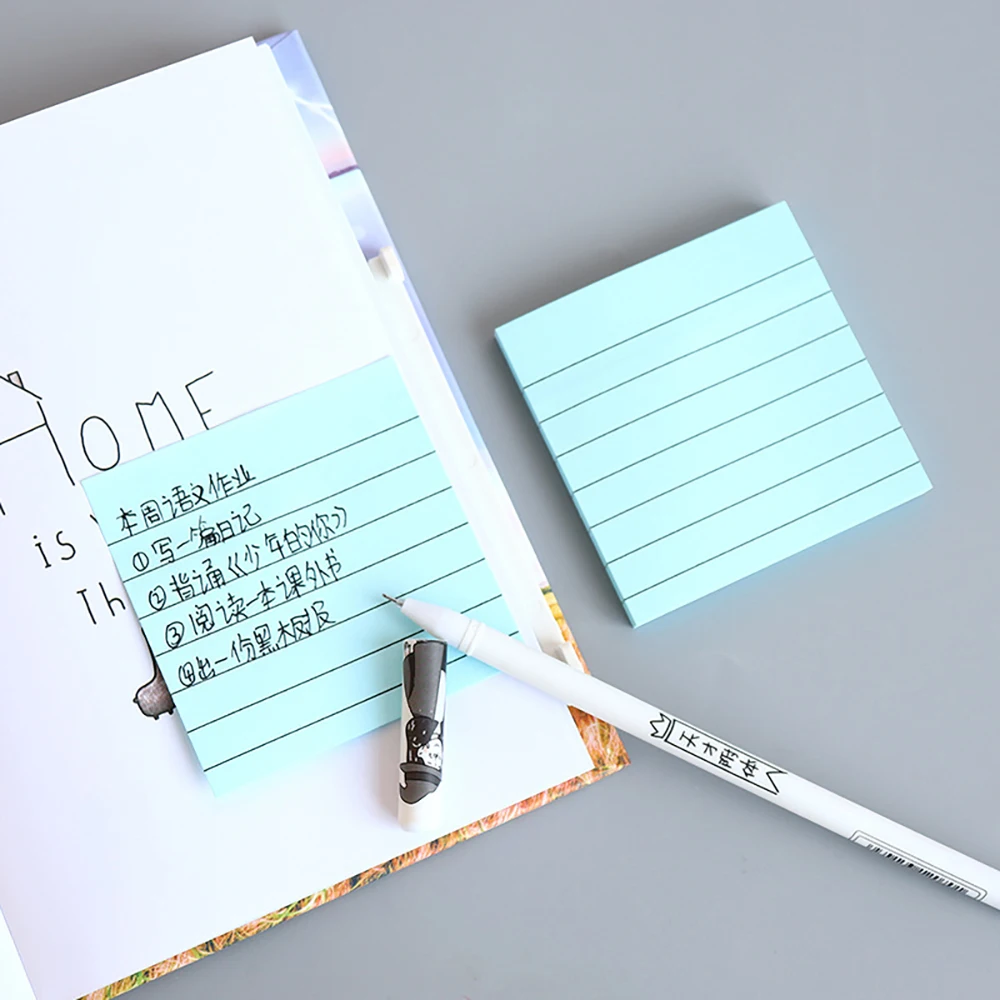 HOME
is
Th
本周语文作业
①写一篇日记
②背诵《少年的你》
③阅读一本课外书
④出一份黑板报
天才附体